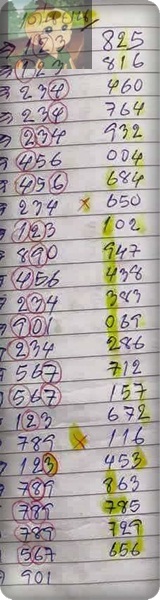 123 825
123 816
234 460
234 764
234 932
456 004
456 684
234 × 650
123 102
890 947
456 438
234 383
901 069
234 286
567 712
567 157
123 672
789 × 116
123 453
789 863
789 785
789 729
567 656
901